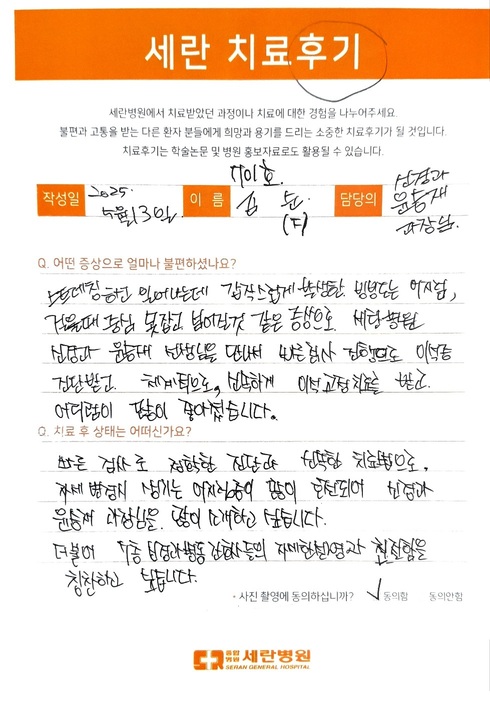 세란 치료후기
세란병원에서 치료받았던 과정이나 치료에 대한 경험을 나누어주세요.
불편과 고통을 받는 다른 환자 분들에게 희망과 용기를 드리는 소중한 치료후기가 될 것입니다.
치료후기는 학술논문 및 병원 홍보자료로도 활용될 수 있습니다.
701호
작성일 2025. 5월13일 이 름 김 (F) 담당의 신경과 윤승재 과장님.
Q. 어떤 증상으로 얼마나 불편하셨나요?
하고 일어나는데 갑작스럽게 발생한 빙빙도는 어지럼,
걸을때 중심 못잡고 넘어질것 같은 증상으로 세란병원
신경과 윤승재 선생님을 만나서 빠른검사 진행으로 이석증
진단받고. 체계적으로, 신속하게 이석교정치료를 받고.
어지럼이 많이 좋아졌습니다.
Q. 치료 후 상태는 어떠신가요?
빠른 검사로 정확한 진단과 신속한 치료법으로,
자세 변경시 생기는 어지럼증이 많이 호전되어 신경과
윤승재 과장님을 많이 소개하고 싶습니다.
더불어 7층 신경과병동 간호사들의 자세한설명과 친절함을
칭찬하고 싶습니다.
• 사진 촬영에 동의하십니까? ✓ 동의함 동의안함
종합병원 세란병원
SERAN GENERAL HOSPITAL